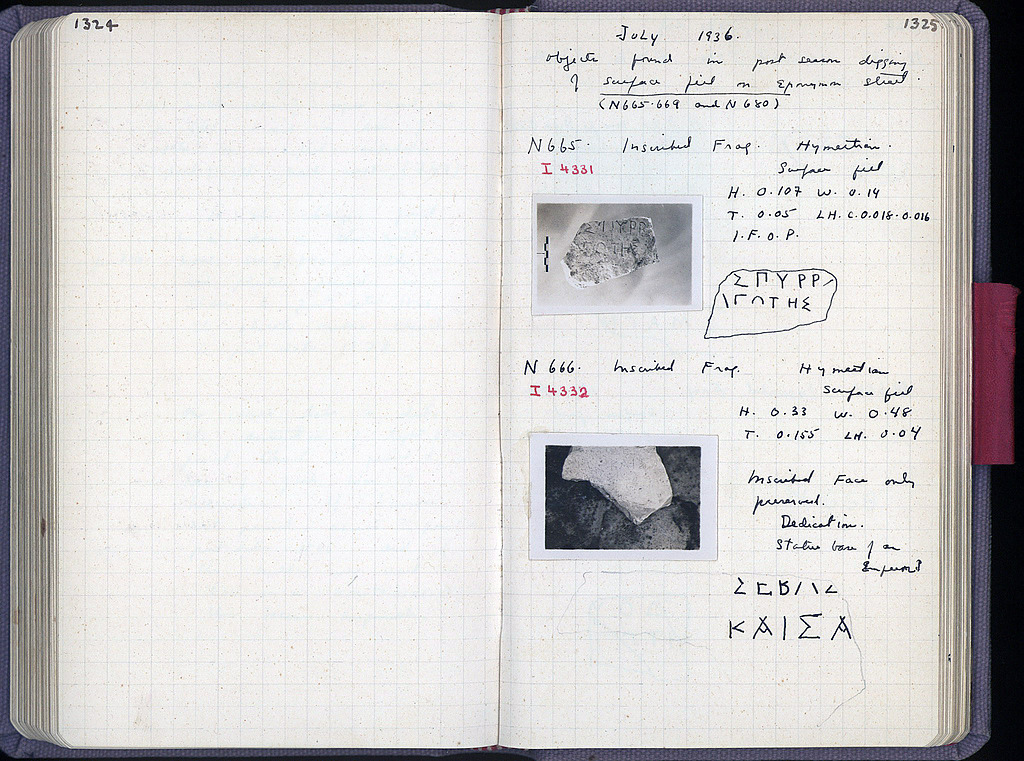 1324
1325
July 1936.
objects found in post season digging
of surface fill on Eponymon Street.
(N665-669 and N680)
N665. Inscribed Frag. Hymettian.
I 4331
Surface fill
H. 0.107 W. 0.14
T. 0.05 LH. c. 0.018-0.016
I.F.O.P.
ΣΠΥΡΡ
ΣΠΥΡΡ
ΓΩΤΗΣ
ΓΩΤΗΣ
N 666. Inscribed Frag. Hymettian
I 4332
Surface fill
H. 0.33 W. 0.48
T. 0.155 LH. 0.04
Inscribed Face only
preserved.
Dedication.
Statue base of an
Emperor?
ΣΕΒ
ΚΑΙΣΑ